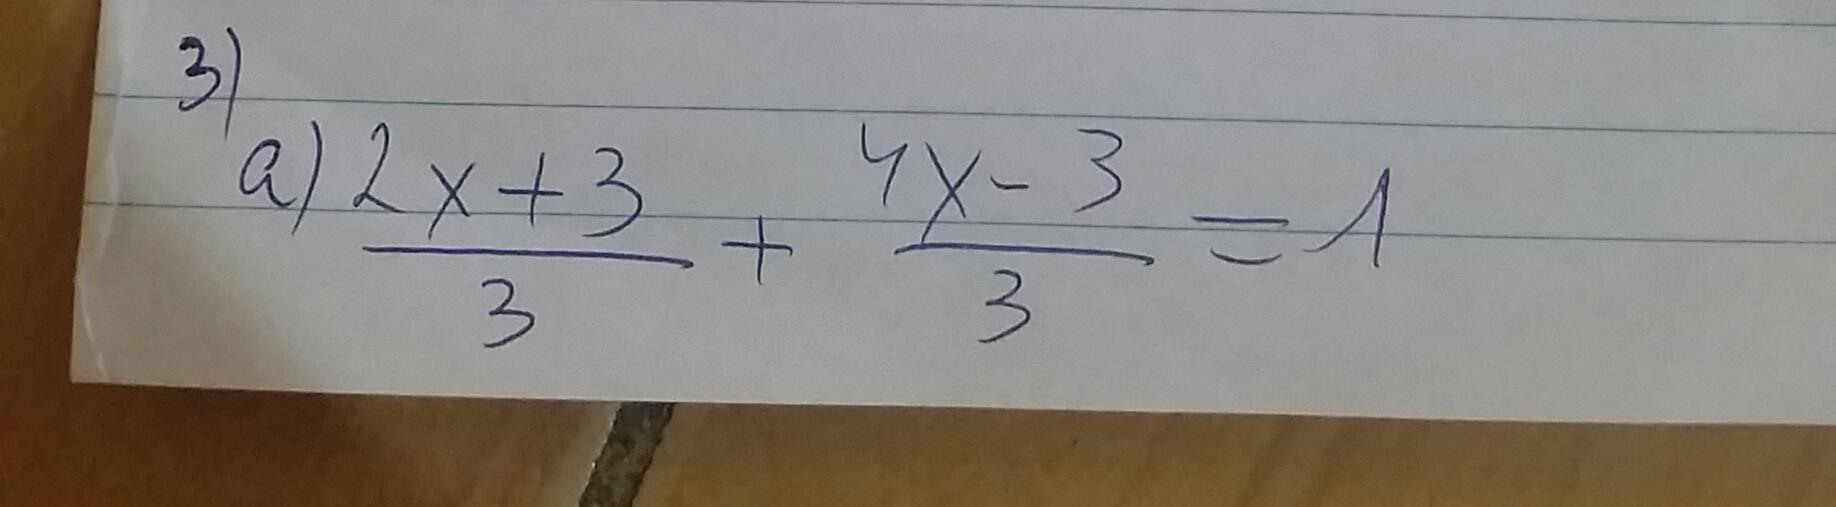 3)
a) \frac{2x+3}{3} + \frac{4x-3}{3} = 1